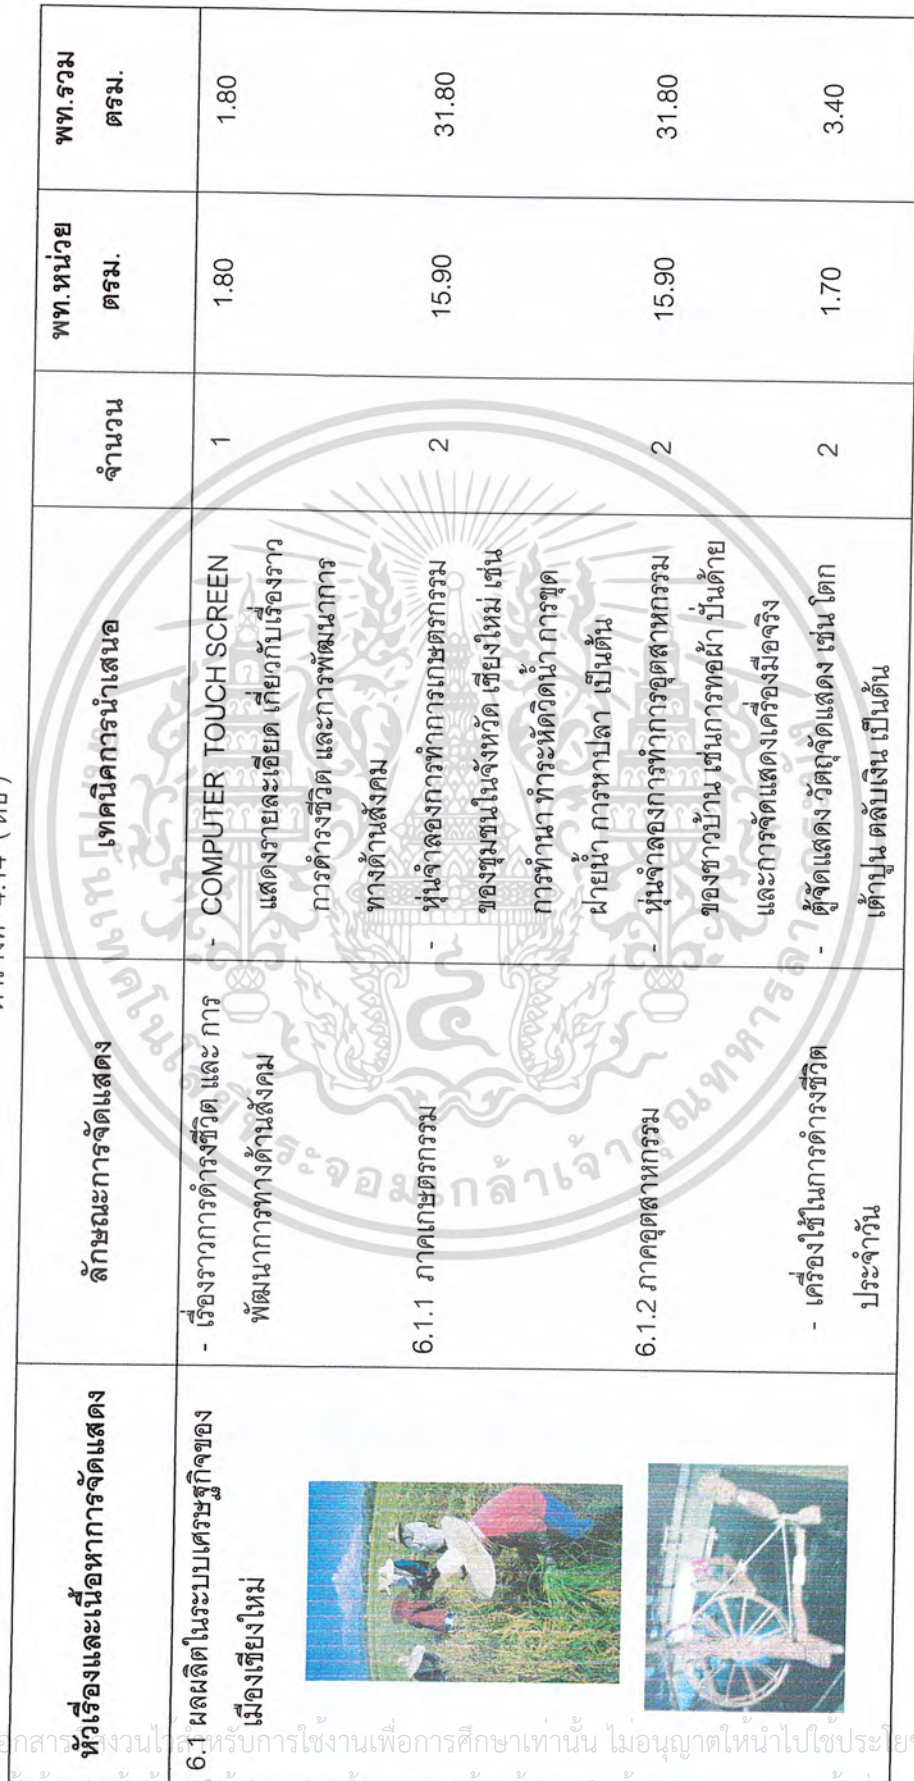 หัวเรื่องและเนื้อหาการจัดแสดง
ลักษณะการจัดแสดง
เทคนิคการนำเสนอ
จำนวน
พท.หน่วย
ตรม.
พท.รวม
ตรม.
6.1 ผลผลิตในระบบเศรษฐกิจของ
เมืองเชียงใหม่
- เรื่องราวการดำรงชีวิต และ การ
พัฒนาการทางด้านสังคม
- COMPUTER TOUCH SCREEN
แสดงรายละเอียด เกี่ยวกับเรื่องราว
การดำรงชีวิต และการพัฒนาการ
ทางด้านสังคม
1
1.80
1.80
6.1.1 ภาคเกษตรกรรม
- หุ่นจำลองการทำการเกษตรกรรม
ของชุมชนในจังหวัด เชียงใหม่ เช่น
การทำนา ทำระหัดวิดน้ำ การขุด
ฝายน้ำ การหาปลา เป็นต้น
2
15.90
31.80
6.1.2 ภาคอุตสาหกรรม
- หุ่นจำลองการทำการอุตสาหกรรม
ของชาวบ้าน เช่นการทอผ้า ปั่นด้าย
และการจัดแสดงเครื่องมือจริง
2
15.90
31.80
- เครื่องใช้ในการดำรงชีวิต
ประจำวัน
- ตู้จัดแสดง วัตถุจัดแสดง เช่น โตก
เต้าปูน ตลับเงิน เป็นต้น
2
1.70
3.40
สงวนไว้สำหรับการใช้งานเพื่อการศึกษาเท่านั้น ไม่อนุญาตให้นำไปใช้ประโย